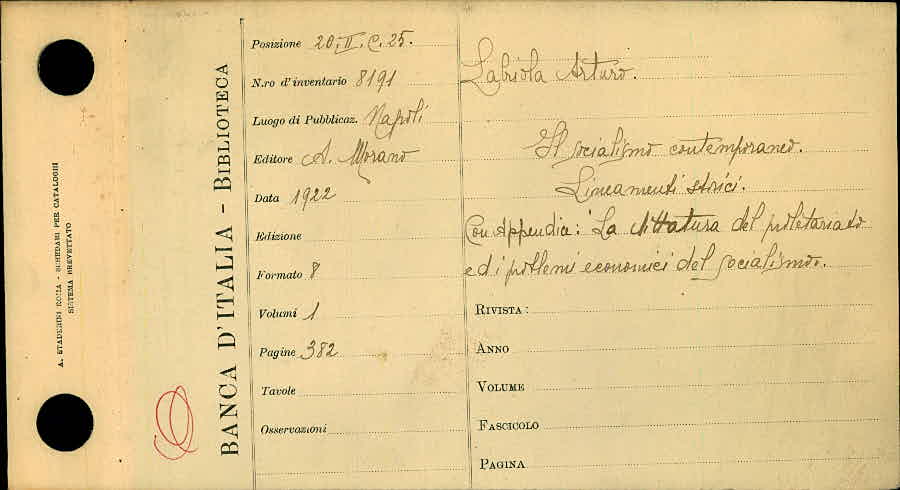 A. STADERINI ROMA - SCHEDARI PER CATALOGHI
SISTEMA BREVETTATO
BANCA D'ITALIA - BIBLIOTECA
Posizione 20.II.C.25.
N.ro d'inventario 8191
Luogo di Pubblicaz. Napoli
Editore A. Morano
Data 1922
Edizione
Formato 8
Volumi 1
Pagine 382
Tavole
Osservazioni
Labriola Arturo.
Il socialismo contemporaneo.
Lineamenti storici.
Con Appendice: La dittatura del proletariato
ed i problemi economici del socialismo.
RIVISTA:
ANNO
VOLUME
FASCICOLO
PAGINA